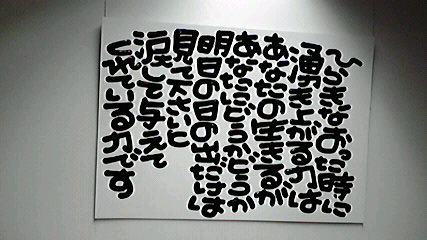 ひらきなおった時に
湧き上がる力は
あなたの生きるが
あなたにどうかどうか
明日の日の出だけは
見て下さいと
涙して与えて
くれている力です